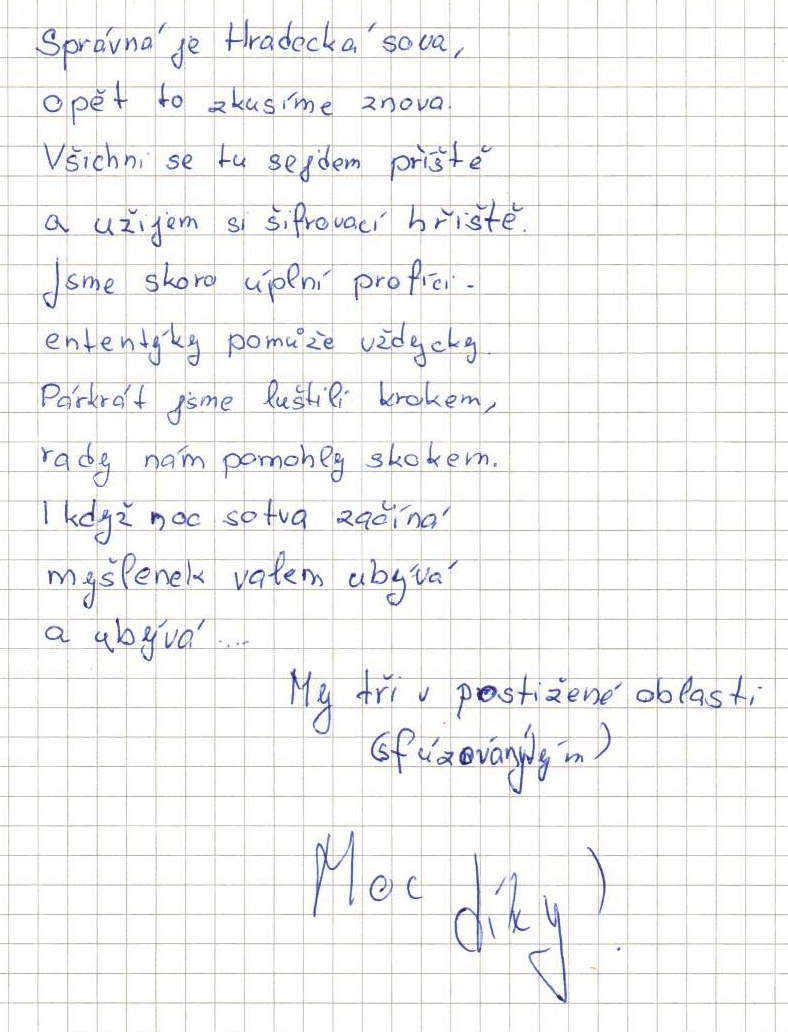 Správná je Hradecká sova,
opět to zkusíme znova.
Všichni se tu sejdem příště
a užijem si šifrovací hřiště.
Jsme skoro úplní profíci -
ententýky pomůže vždycky.
Párkrát jsme luštili krokem,
rady nám pomohly skokem.
I když noc sotva začíná
myšlenek valem ubývá
a ubývá ....
My tři v postižené oblasti
Moc díky!